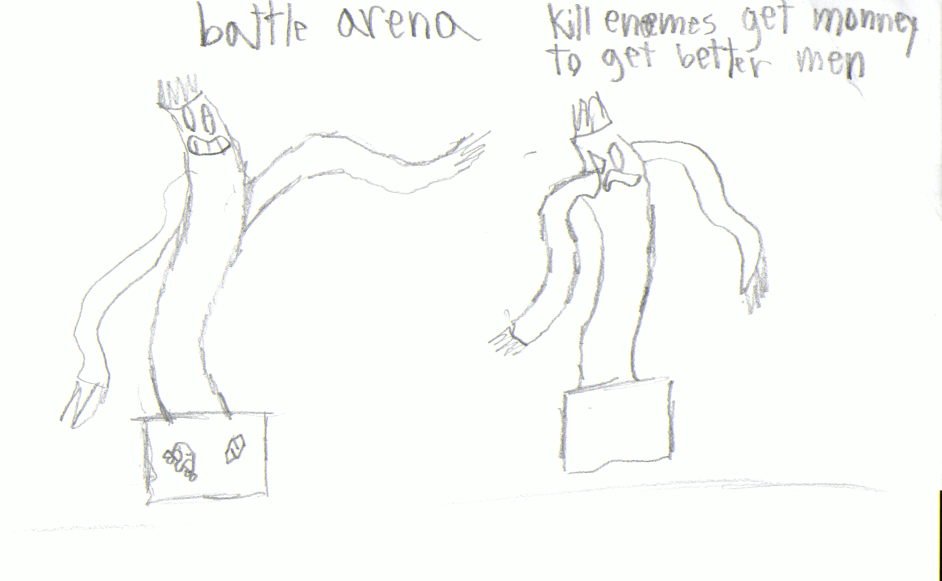 battle arena
kill enemes get monney
to get better men